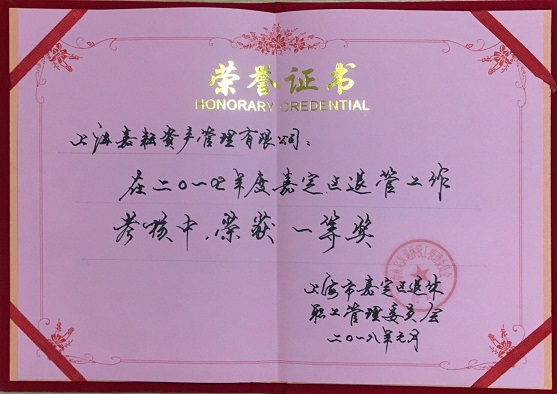 荣誉证书
HONORARY CREDENTIAL
上海嘉耘资产管理有限公司：
在二〇一七年度嘉定区退管工作
考核中，荣获一等奖
上海市嘉定区退休
职工管理委员会
二〇一八年元月